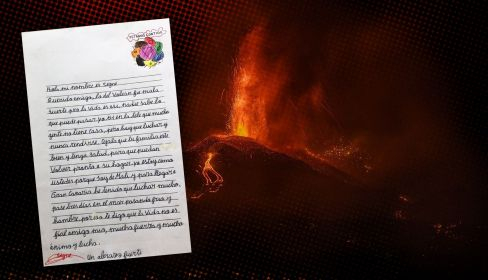 ESTAMOS CONTIGO
Hola, mi nombre es Segne
Querido amigo, lo del Volcan fue mala
suerte pero la vida es así, nadie sabe lo
que puede pasar. yo vi en la tele que mucha
gente no tiene casa, pero hay que luchar y
nunca rendirse. Ojala que tu familia este
bien y tenga salud, para que puedan
volver pronto a su hogar. yo estoy como
ustedes porque soy de Mali, y para llegar a
Gran Canaria he tenido que luchar mucho,
pase tres días en el mar pasando frío y
hambre, por eso te digo que la vida no es
fácil amigo mio, mucha fuerza y mucho
ánimo y lucha.
Segne Un abrazo fuerte